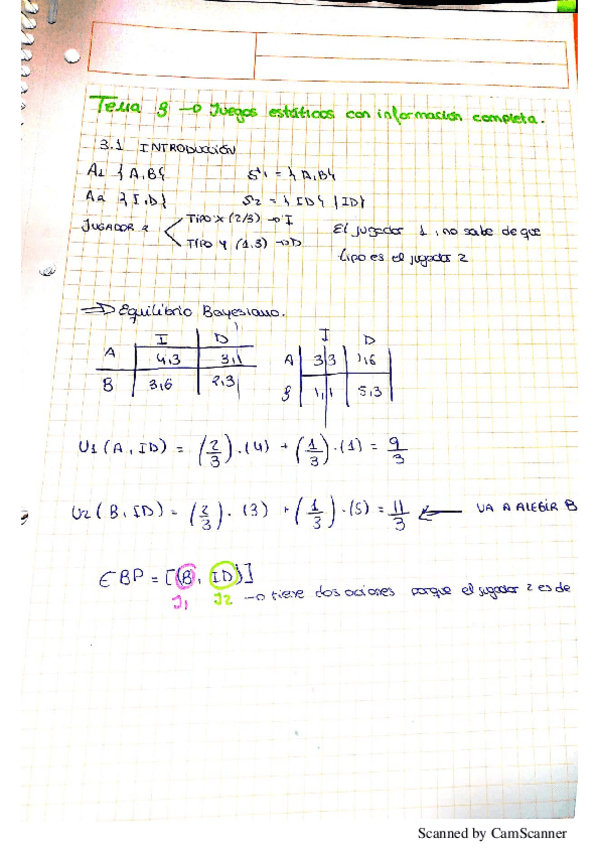 Tema 3 → Juegos estáticos con información completa.
3.1 INTRODUCCIÓN
A1 {A,B{ S1 = {A,B{
A2 }I,D} S2 = { ID{ {ID}
JUGADOR 2 TIPO X (2/3) → I
TIPO Y (1,3) → D
El jugador 1, no sabe de que
tipo es el jugador 2
⇒ Equilibrio Bayesiano.
I D I D
A 4,3 3,1 A 3 3 1,6
B 3,6 2,3 B 1,1 5,3
U1 (A, ID) = (2/3).(4) + (1/3).(1) = 9/3
U2 (B, ID) = (2/3). (3) + (1/3).(5) = 11/3 ← VA A ALEGIR B
EBP = [(B, ID)]
J1 J2 → tieve dos ociones porque el jugador 2 es de
Scanned by CamScanner